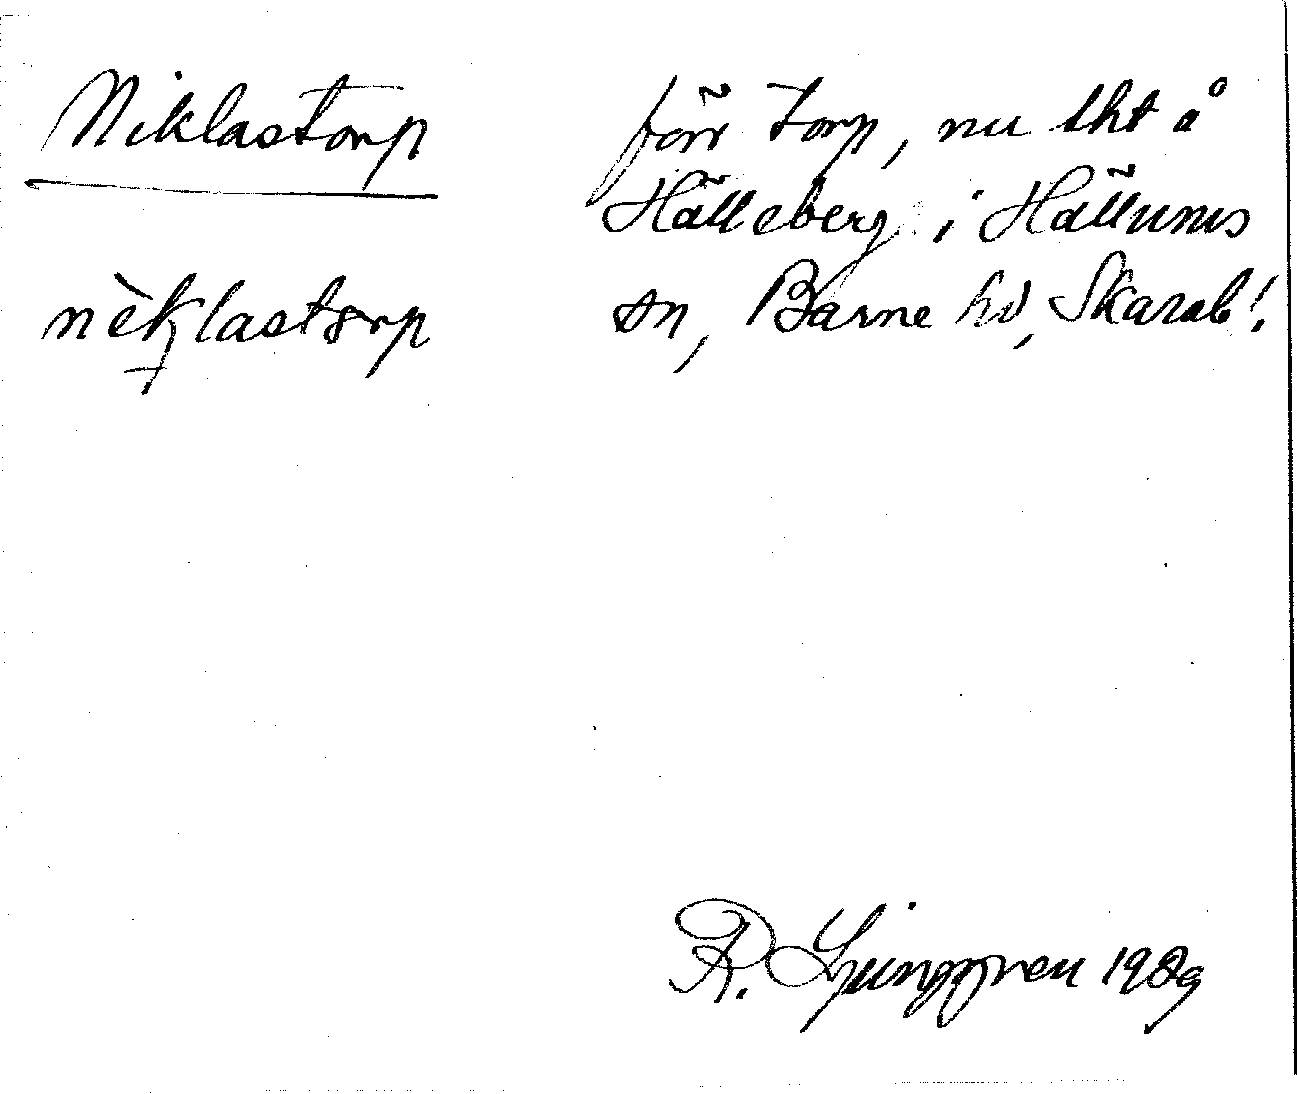 Niklastorp
nèklastorp
förr torp, nu lht å
Hälleberg i Hällums
sn, Barne hd, Skarab!
R. Ljunggren 1989